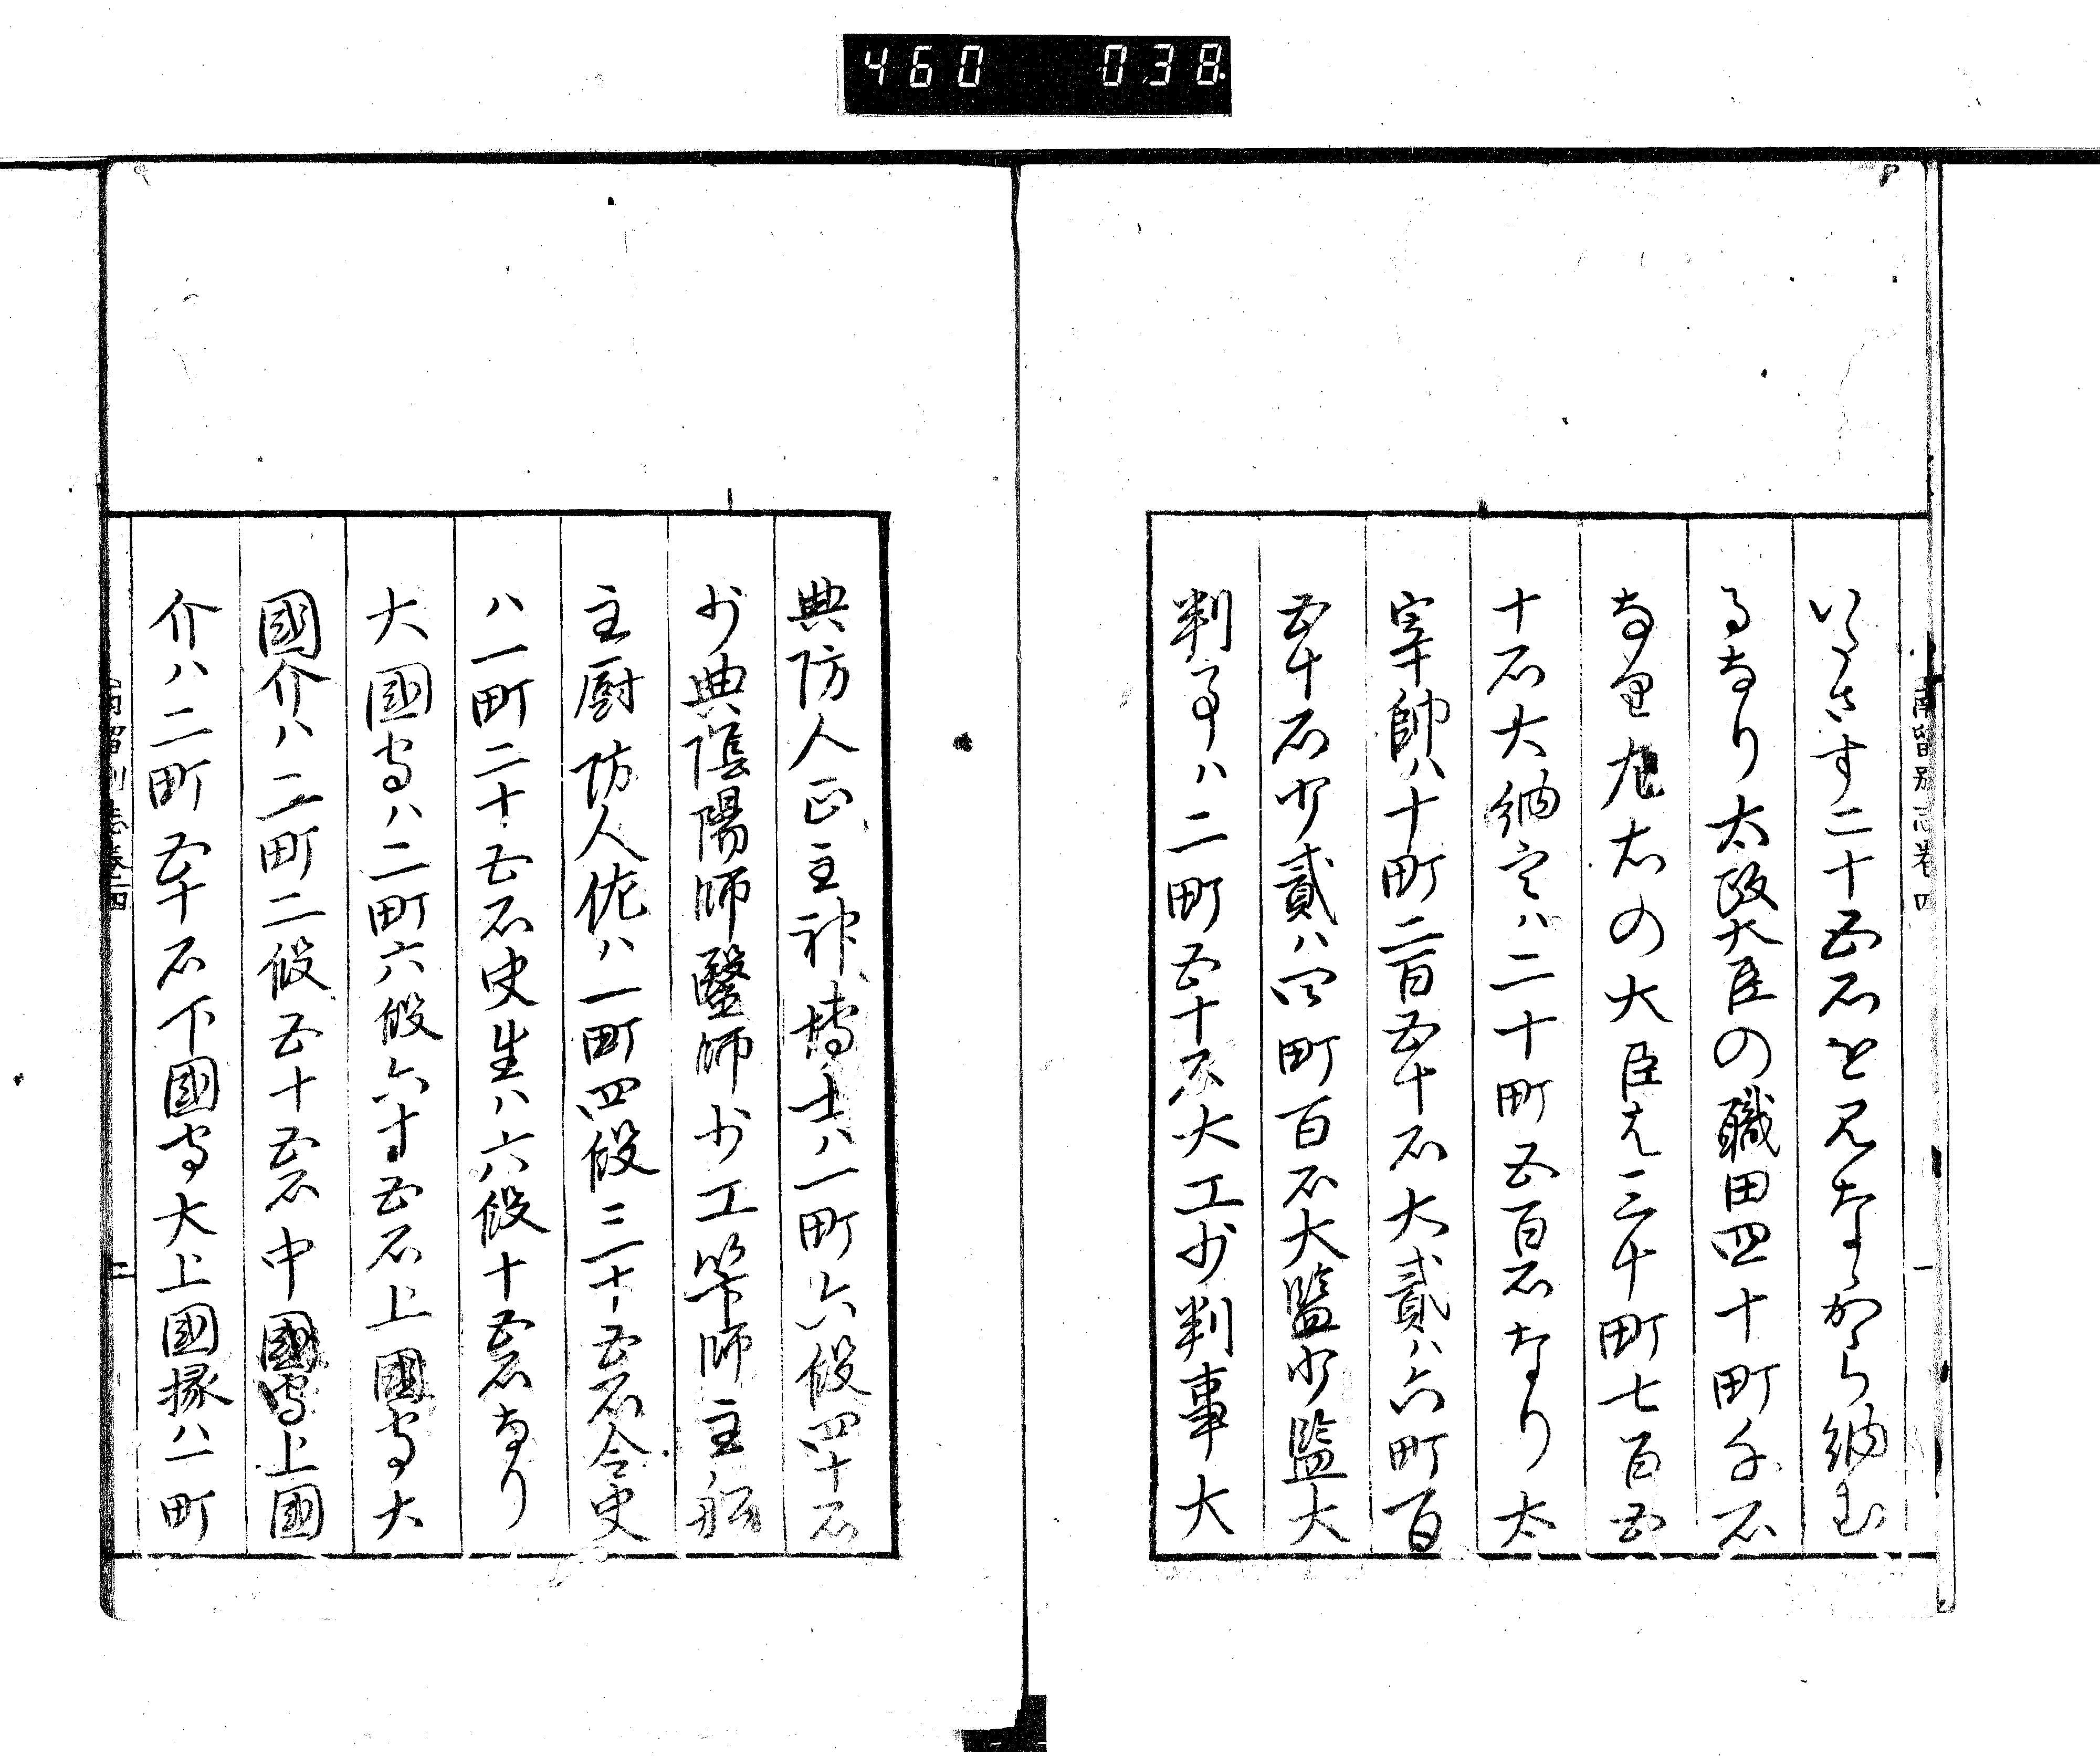 460 038
南留別志卷四 一
いたさす二十五石と見なから納む
るなり太政大臣の職田四十町千石
なり左右の大臣は三十町七百五
十石大納言ハ二十町五百石なり太
宰帥ハ十町二百五十石大貳ハ六町百
五十石少貳ハ四町百石大監少監大
判事ハ二町五十石大工少判事大
典防人正主神博士ハ一町六段四十石
少典陰陽師醫師少工筭師主船
主厨防人佑ハ一町四段三十五石令史
ハ一町二十五石史生ハ六段十五石なり
大國守ハ二町六段六十五石上國守大
國介ハ二町二段五十五石中國守上國
介ハ二町五十石下國守大上國掾ハ一町
南留別志卷四 二